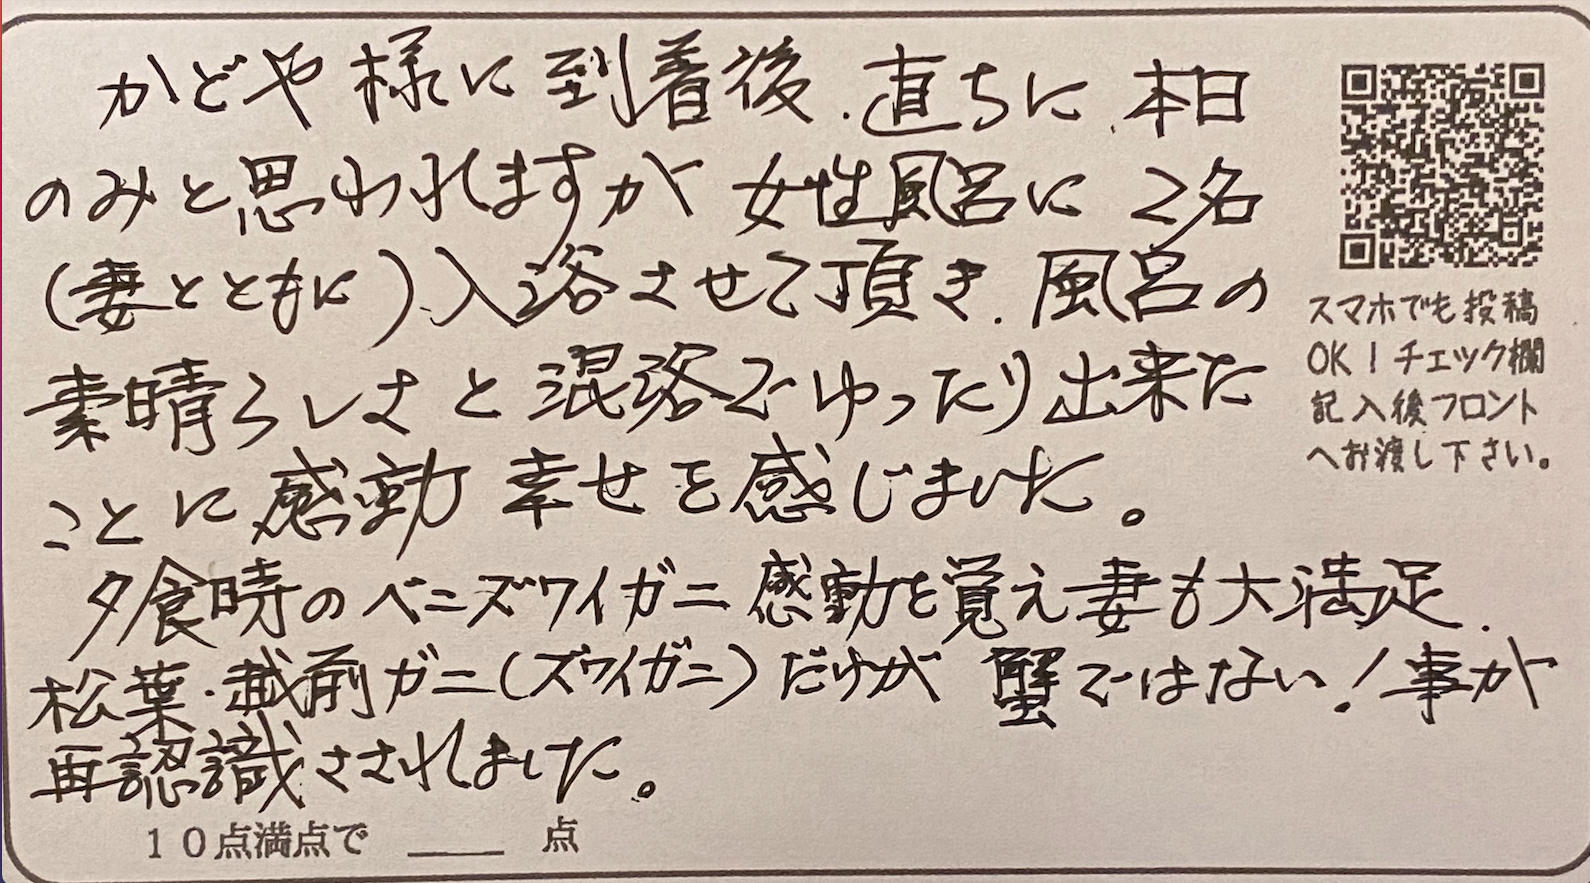 かどや様に到着後、直ちに、本日
のみと思われますが女性風呂に2名
(妻とともに)、入浴させて頂き、風呂の
素晴らしさと混浴でゆったり出来た
ことに感動 幸せを感じました。
夕食時のベニズワイガニ 感動を覚え妻も大満足、
松葉・越前ガニ(ズワイガニ)だけが 蟹ではない!事が
再認識さされました。
10点満点で 点
スマホでも投稿
OK!チェック欄
記入後フロント
へお渡し下さい。